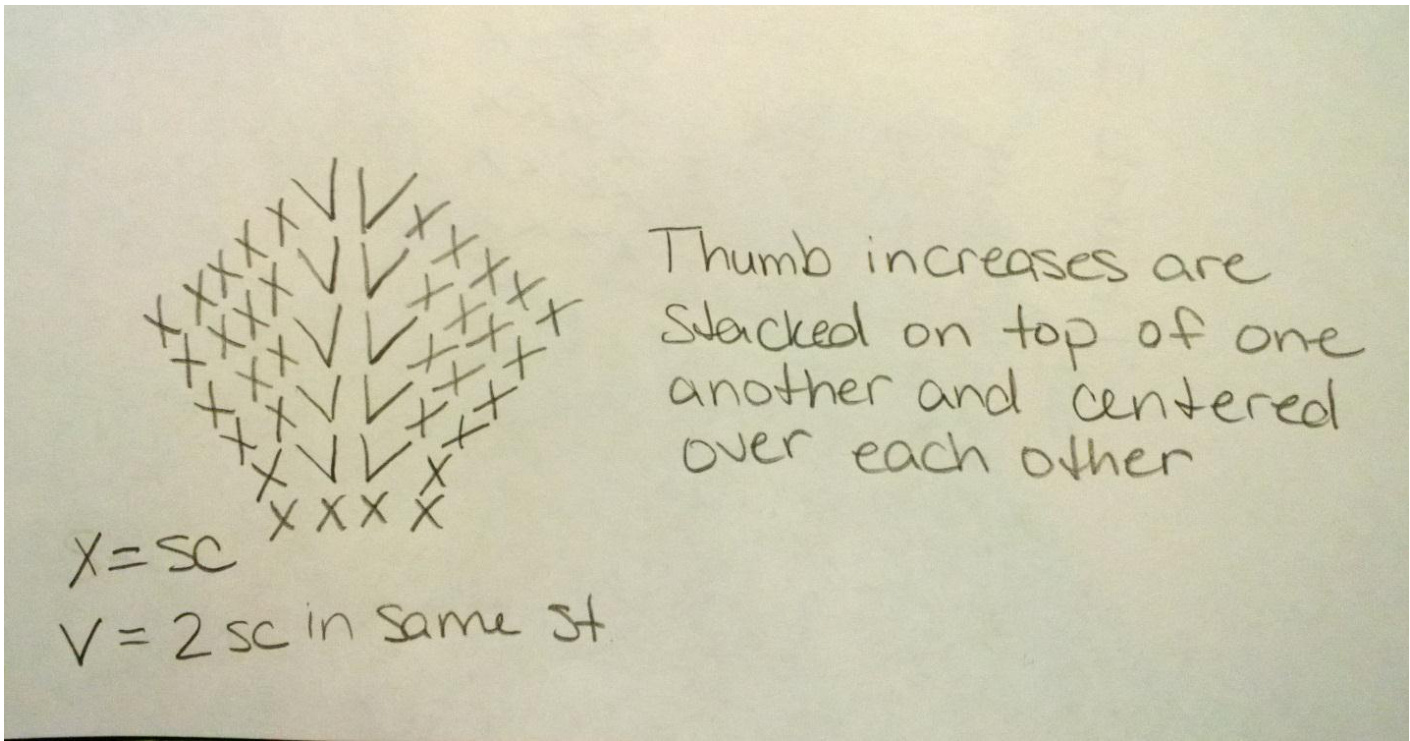 Thumb increases are
stacked on top of one
another and centered
over each other
X X X X
X = SC
V = 2 SC in same st